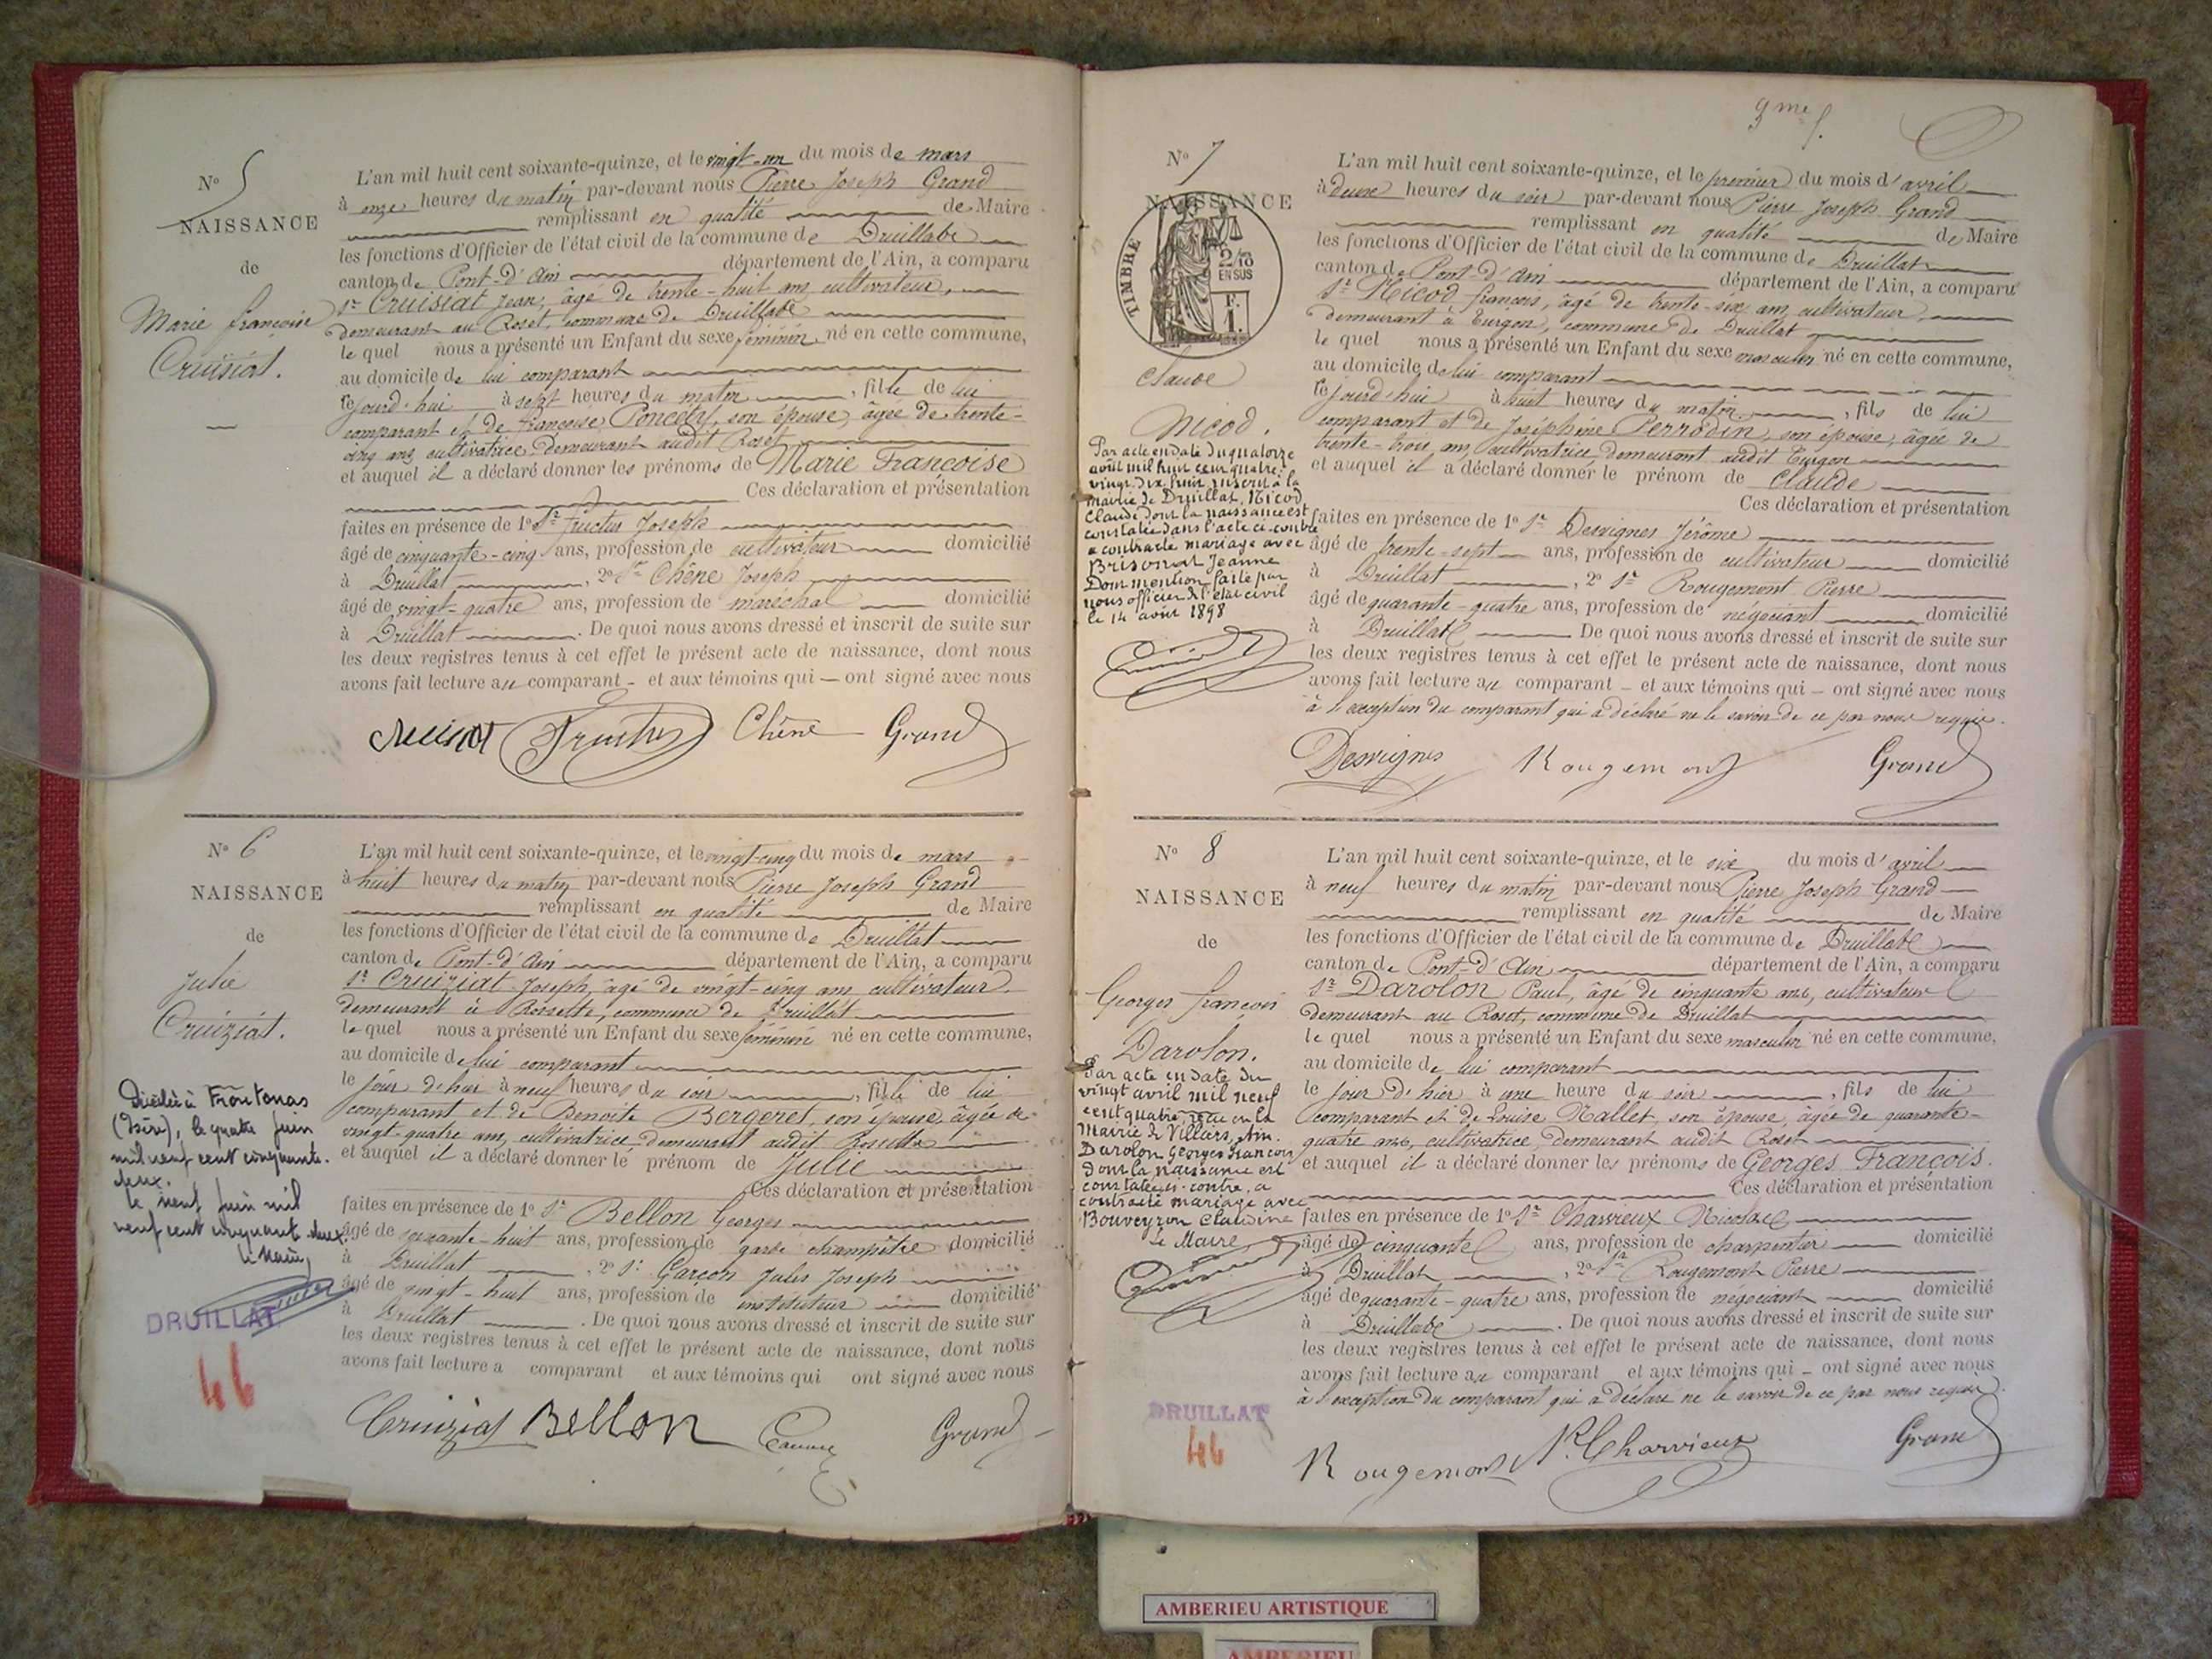 N° 5
NAISSANCE
de
Marie françoise
Cruisiat.
L'an mil huit cent soixante-quinze, et le vingt-un du mois de mars
à onze heures du matin par-devant nous Pierre Joseph Grand
remplissant en qualité de Maire
les fonctions d'Officier de l'état civil de la commune de Druillat
canton de Pont-d'Ain département de l'Ain, a comparu
Sr Cruisiat Jean, âgé de trente-huit ans, cultivateur,
demeurant au Roset, commune de Druillat
le quel nous a présenté un Enfant du sexe féminin né en cette commune,
au domicile de lui comparant
ce jourd'hui à sept heures du matin, fille de lui
comparant et de françoise Poncety, son épouse, âgée de trente-
cinq ans, cultivatrice demeurant audit Roset
et auquel il a déclaré donner les prénoms de Marie Françoise
Ces déclaration et présentation
faites en présence de 1° Sr Fructus Joseph
âgé de cinquante-cinq ans, profession de cultivateur domicilié
à Druillat, 2° Sr Chêne Joseph
âgé de vingt-quatre ans, profession de maréchal domicilié
à Druillat. De quoi nous avons dressé et inscrit de suite sur
les deux registres tenus à cet effet le présent acte de naissance, dont nous
avons fait lecture au comparant - et aux témoins qui — ont signé avec nous
Cruisiat Fructus Chêne Grand
N° 6
NAISSANCE
de
Julie
Cruiziat.
Décédée à Frontonas
(Isère), le quatre juin
mil neuf cent cinquante-
deux.
le neuf juin mil
neuf cent cinquante-deux.
le Maire,
DRUILLAT
46
L'an mil huit cent soixante-quinze, et le vingt-cinq du mois de mars
à huit heures du matin par-devant nous Pierre Joseph Grand
remplissant en qualité de Maire
les fonctions d'Officier de l'état civil de la commune de Druillat
canton de Pont-d'Ain département de l'Ain, a comparu
Sr Cruiziat Joseph, âgé de vingt-cinq ans cultivateur
demeurant à Rossette, commune de Druillat
le quel nous a présenté un Enfant du sexe féminin né en cette commune,
au domicile de lui comparant
le jour d'hier à neuf heures du soir, fille de lui
comparant et de Benoite Bergeret, son épouse, âgée de
vingt-quatre ans, cultivatrice demeurant audit Rossette
et auquel il a déclaré donner le prénom de Julie
Ces déclaration et présentation
faites en présence de 1° Sr Bellon Georges
âgé de soixante-huit ans, profession de garde champêtre domicilié
à Druillat, 2° Sr Garçon Jules Joseph
âgé de vingt-huit ans, profession de instituteur domicilié
à Druillat. De quoi nous avons dressé et inscrit de suite sur
les deux registres tenus à cet effet le présent acte de naissance, dont nous
avons fait lecture a comparant et aux témoins qui ont signé avec nous
Cruiziat Bellon Grand
9me f.
N° 7
NAISSANCE
TIMBRE
2/10
EN SUS
F.
1.
Claude
Nicod.
Par acte en date du quatorze
août mil huit cent quatre-
vingt dix huit inscrit à la
mairie de Druillat, Nicod
Claude dont la naissance est
constatée dans l'acte ci-contre
a contracté mariage avec
Brisonat Jeanne
Dont mention faite par
nous officier de l'état civil
le 14 août 1898
L'an mil huit cent soixante-quinze, et le premier du mois d'avril
à deux heures du soir par-devant nous Pierre Joseph Grand
remplissant en qualité de Maire
les fonctions d'Officier de l'état civil de la commune de Druillat
canton de Pont-d'Ain département de l'Ain, a comparu
Sr Nicod françois, âgé de trente-six ans, cultivateur
demeurant à Turgon, commune de Druillat
le quel nous a présenté un Enfant du sexe masculin né en cette commune,
au domicile de lui comparant
ce jourd'hui à huit heures du matin, fils de lui
comparant et de Joséphine Perrodin, son épouse, âgée de
trente-trois ans, cultivatrice, demeurant audit Turgon
et auquel il a déclaré donner le prénom de Claude
Ces déclaration et présentation
faites en présence de 1° Sr Desvignes Jérôme
âgé de trente-sept ans, profession de cultivateur domicilié
à Druillat, 2° Sr Rougemont Pierre
âgé de quarante-quatre ans, profession de négociant domicilié
à Druillat. De quoi nous avons dressé et inscrit de suite sur
les deux registres tenus à cet effet le présent acte de naissance, dont nous
avons fait lecture au comparant - et aux témoins qui - ont signé avec nous
à l'exception du comparant qui a déclaré ne le savoir de ce par nous requis.
Desvignes Rougemont Grand
N° 8
NAISSANCE
de
Georges françois
Darolon.
Par acte en date du
vingt avril mil neuf
cent quatre reçu en la
Mairie de Villars, Ain.
Darolon Georges françois
dont la naissance est
constatée ci-contre, a
contracté mariage avec
Bouveyron Claudine
Le Maire
DRUILLAT
46
L'an mil huit cent soixante-quinze, et le six du mois d'avril
à neuf heures du matin par-devant nous Pierre Joseph Grand
remplissant en qualité de Maire
les fonctions d'Officier de l'état civil de la commune de Druillat
canton de Pont-d'Ain département de l'Ain, a comparu
Sr Darolon Paul, âgé de cinquante ans, cultivateur
demeurant au Roset, commune de Druillat
le quel nous a présenté un Enfant du sexe masculin né en cette commune,
au domicile de lui comparant
le jour d'hier à une heure du soir, fils de lui
comparant et de Louise Mallet, son épouse, âgée de quarante-
quatre ans, cultivatrice, demeurant audit Roset
et auquel il a déclaré donner les prénoms de Georges François.
Ces déclaration et présentation
faites en présence de 1° Sr Charvieux Nicolas
âgé de cinquante ans, profession de charpentier domicilié
à Druillat, 2° Sr Rougemont Pierre
âgé de quarante-quatre ans, profession de négociant domicilié
à Druillat. De quoi nous avons dressé et inscrit de suite sur
les deux registres tenus à cet effet le présent acte de naissance, dont nous
avons fait lecture au comparant et aux témoins qui - ont signé avec nous
à l'exception du comparant qui a déclaré ne le savoir de ce par nous requis.
Rougemont N. Charvieux Grand
AMBERIEU ARTISTIQUE
AMBERIEU